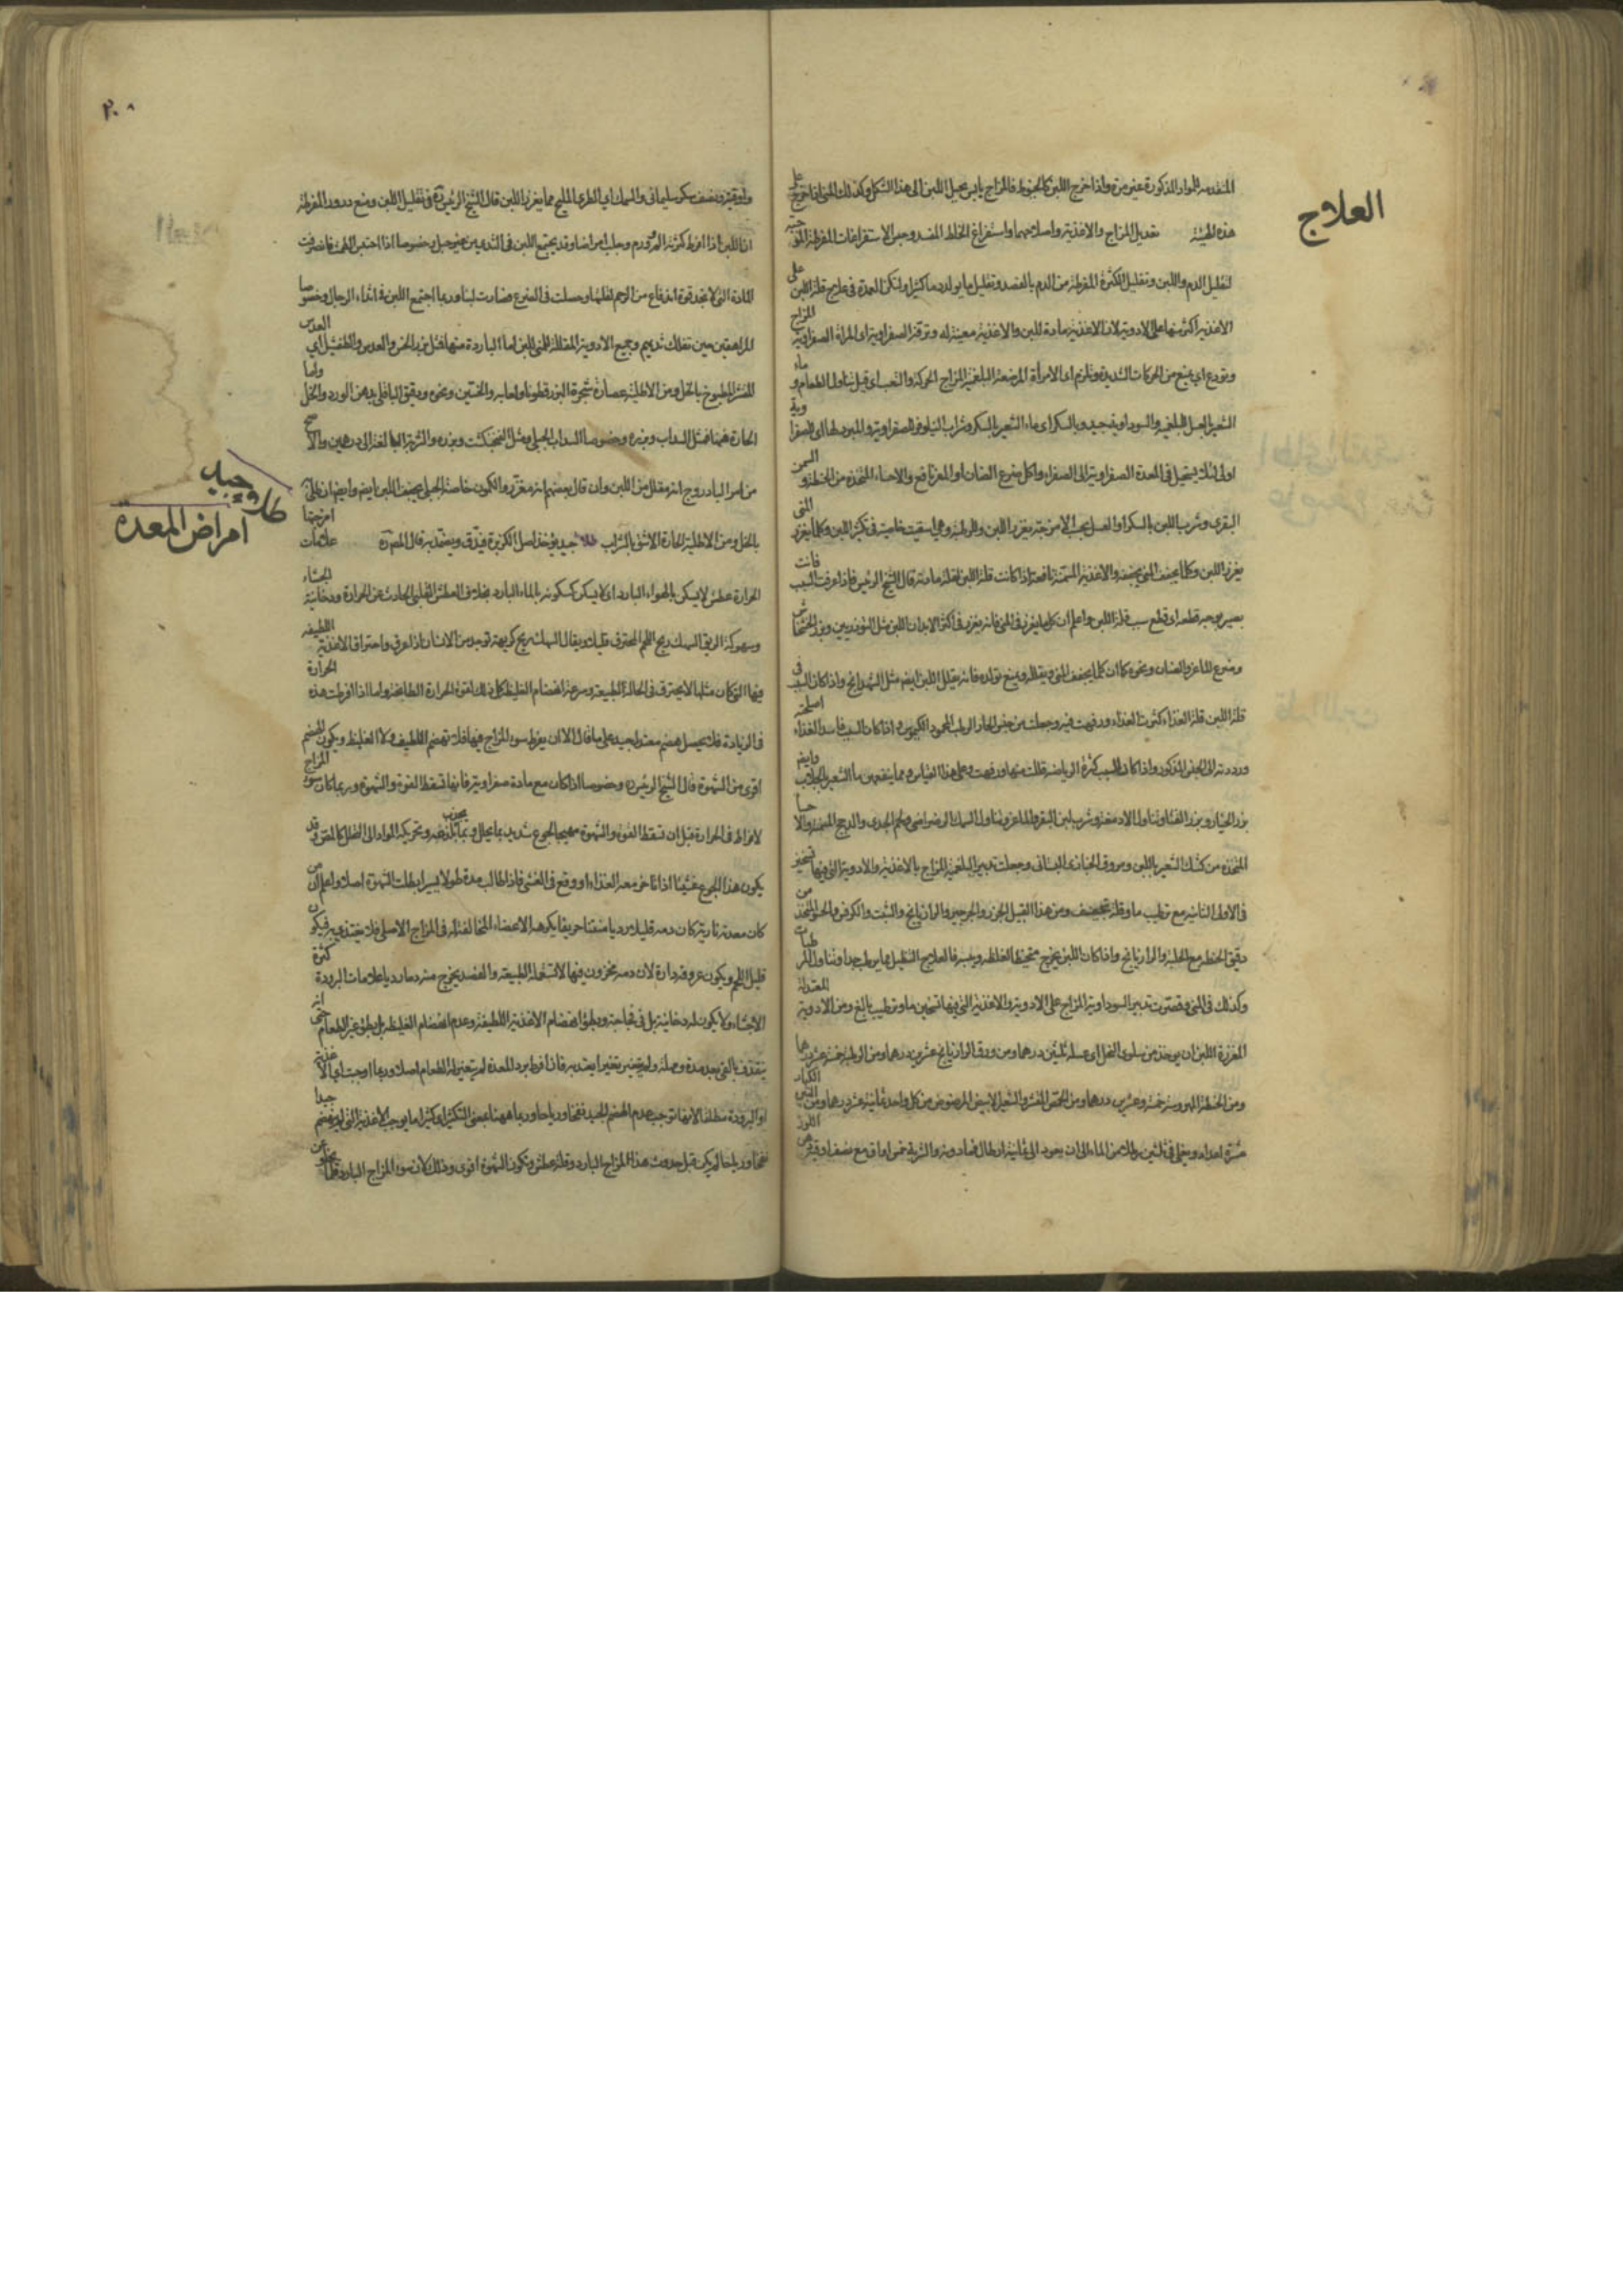 العلاج
المتقدمة للمواد المذكورة غير مرة واذا خرج اللبن كالخيوط فالمزاج يابس يحيل اللبن الى هذا الشكل وكذلك المنى اذا خرج على
هذه الهيئة تعديل المزاج والاغذية واصلاحهما واستفراغ الخلط المفسد وحبس الاستفراغات المفرطة
لتقليل الدم واللبن وتقليل الكثرة المفرطة من الدم بالفصد وتقليل ما يولد دما كثيرا ولتكن العمدة فى علاج قلة اللبن على
الاغذية اكثر منها على الادوية لان الاغذية مادة للبن والاغذية معينة له وترقة الصفراوية اى المرأة الصفراوية المزاج
وتودع اى يمنع من الحركات الشديدة ويلزم اى الامرأة المرضعة البلغمية المزاج الحركة والتعب اى قبل تناول الطعام و ماء
الشعير بالعسل للبلغمية والسوداوية جيد وبالسكر اى ماء الشعير بالسكر وشراب النيلوفر للصفراوية
اولى لئلا يستحيل فى المعدة الصفراوية الى الصفراء واكل ضرع الضان او المعز نافع والاحساء المتخذة من الحنطة و السمن
البقرى وشرب اللبن بالسكر او العسل بحسب الامزجة يغزر اللبن
يغزر اللبن وكلما يجفف المنى يجففه والاغذية المسمنة نافعة اذا كانت قلة اللبن لقلة مادته قال الشيخ الرئيس فاذا عرفت السبب
قطعت اى قطع سبب قلة اللبن واعلم ان كل ما يغزر فى المنى فانه يغزر فى اكثر الابدان اللبن مثل التودريين وبزر الخشخاش
وضرع الماعز والضان ونحوه كما ان كلما يجفف المنى ويقلله ويمنع تولده فانه يقلل اللبن ايضا مثل الشهدانج واذا كان السبب فى
قلة اللبن قلة الغذاء كثرت الغذاء ورفهت فيه وجعلته من جنس الحار الرطب المحمود الكيموس واذا كان السبب فساد الغذاء اصلحته
ورددته الى الجنس المذكور واذا كان السبب كثرة الرياضة قللت منها ورفهت وعلى هذا القياس ومما ينفعهن ماء الشعير الجلاب وايضا
بزر الخيار وبزر القثا وتناول الادمغة وشرب لبن البقر والماعز وتناول السمك الرضراضى ولحم الجدى والدجاج المسمنة والاحسا
المتخذة من كشك الشعير باللبن ومروق الخبازى البستانى وجعلت تدبير البلغمية المزاج بالاغذية والادوية التى فيها تسخين
فى الاولى الثانية مع ترطيب ما وقلة تجفيف ومن هذا القبيل الجزر والجرجير والرازيانج والشبت والكرفس والحسو المتخذ من
دقيق الحنطة مع الحلبة والرازيانج واذا كان اللبن يخرج متخيطا لغلظه ويبسه فالعلاج التنطيل بما يرطب جدا وتناول المرطبات
وكذلك فى المنى وقصرت تدبير السوداوية المزاج على الادوية والاغذية التى فيها تسخين ما وترطيب بالغ ومن الادوية المعتدلة
المغزرة اللبن ان يوخذ من سلوى النخل اى عسله ثلثين درهما ومن ورق الرازيانج عشرين درهما ومن الرطبة خمسة عشر درهما
ومن الحنطة المهروسة خمسة وعشرين درهما ومن الحمص المقشر والشعير الابيض المرضوض من كل واحد ثمانية عشر درهما ومن التين الكبار
عشرة اعداد ويغلى فى ثلثين رطلا من الماء الى ان يعود الى ثمانية ارطال فما دونه والشربة خمس اواق مع نصف اوقية دهن اللوز
٢٠٨
واوقية ونصف سكر سليمانى والسمك اى الطرى المليح مما يغزر اللبن قال الشيخ الرئيس فى تقليل اللبن ومنع دروره المفرط
ان اللبن اذا افرط كثرته آلم وورم وجلب امراضا وقد يجتمع اللبن فى الثديين من غير حبل وخصوصا اذا احتبس الطمث فانصرفت
المادة التى لا تجد قوة اندفاع من الرحم لقلتها وحصلت فى الضرع فصارت لبنا وربما اجتمع اللبن فى اثداء الرجال وخصوصا
المراهقين حين تفلك ثديهم وجميع الادوية المقللة للمنى للبن اما الباردة منها فمثل بزر الخس والعدس والطفشيل اى العدس
المقشر المطبوخ بالخل ومن الاطلية عصارة شجرة البزرقطونا ولعابه والخس ونحوه ودقيق الباقلى بدهن الورد والخل واما
الحارة منها فمثل السداب وبزره وخصوصا السداب الجبلى ومثل الفنجنكشت وبزره والشربة البالغة الى درهمين والاصح
من امر الباذروج انه مقلل من اللبن وان قال بعضهم انه مغزر والكمون خاصة الجبلى يجفف اللبن ايضا
بالخل ومن الاطلية الحارة الاشق بالشراب طلاء جيد يوخذ اصل الكرنب فيدق ويضمد به قال المص علامات امزجتها
طلاء جيد
امراض المعدة
الحرارة عطش لا يسكن بالهواء البارد اى لا يسكن كسكونه بالماء البارد بخلاف العطش القلبى الحادث عن الحرارة ودخانية الجشاء
وسهوكة الريق السهك ريح اللحم المحترق قليلا ويقال السهك ريح كريهة توجد من الانسان اذا عرق واحتراق الاغذية اللطيفة
فيها التى كان مثلها لا يحترق فى الحالة الطبيعية وسرعة انهضام الغليظ كل ذلك لقوة الحرارة الطابخة واما اذا افرطت هذه الحرارة
فى الزيادة فلا يحصل هضم معتدل جيد على ما قال الا ان يفرط سوء المزاج فيها فلا تهضم اللطيف ولا الغليظ ويكون الهضم
اقوى من الشهوة قال الشيخ الرئيس وخصوصا اذا كان مع مادة صفراوية فانها تسقط القوة والشهوة وربما كان سوء المزاج
لافراط فى الحرارة قبل ان تسقط القوة والشهوة مهيجا لجوع شديد بما يحلل وبما بلذعه وتحريكه المواد الى التحلل كالمص وقد
يكون هذا الجوع غشيا اذا تاخر معه الغذاء او وقع فى الغشى فاذا طالت مدة طولا يسيرا بطلت الشهوة اصلا واعلم ان من
كان معدته نارية كان دمه قليلا رديا منتنا حريفا يكرهه الاعضاء المخالفة له فى المزاج الاصلى فلا يغتذى به فيكون
قليل اللحم ويكون عروقه دارة لان دمه مخزون فيها لا تستعمله الطبيعة والفصد يخرج منه دما رديا علامات البرودة كثرة
الجشاء ولا يكون له دخانية بل فى فجاجته وبطؤ انهضام الاغذية اللطيفة وعدم انهضام الغليظة بل يبطؤ تغير الطعام حتى انه
ينقذف بالقئ بعد مدة ومهلة ولم يتغير تغيرا يعتد به فان افرط برد المعدة لم يتغير له الطعام اصلا وربما اوجبت
او البرودة مطلقا لانها توجب عدم الهضم الجيد نفخا ورياحا وربما ههنا بمعنى التكثير اى كثيرا ما يوجب الاغذية التى لم ينهضم جيدا
نفخا ورياحا لم يكن قبل حدوث هذا المزاج البارد وقلة عطش ويكون الشهوة اقوى وذلك لان سوء المزاج البارد